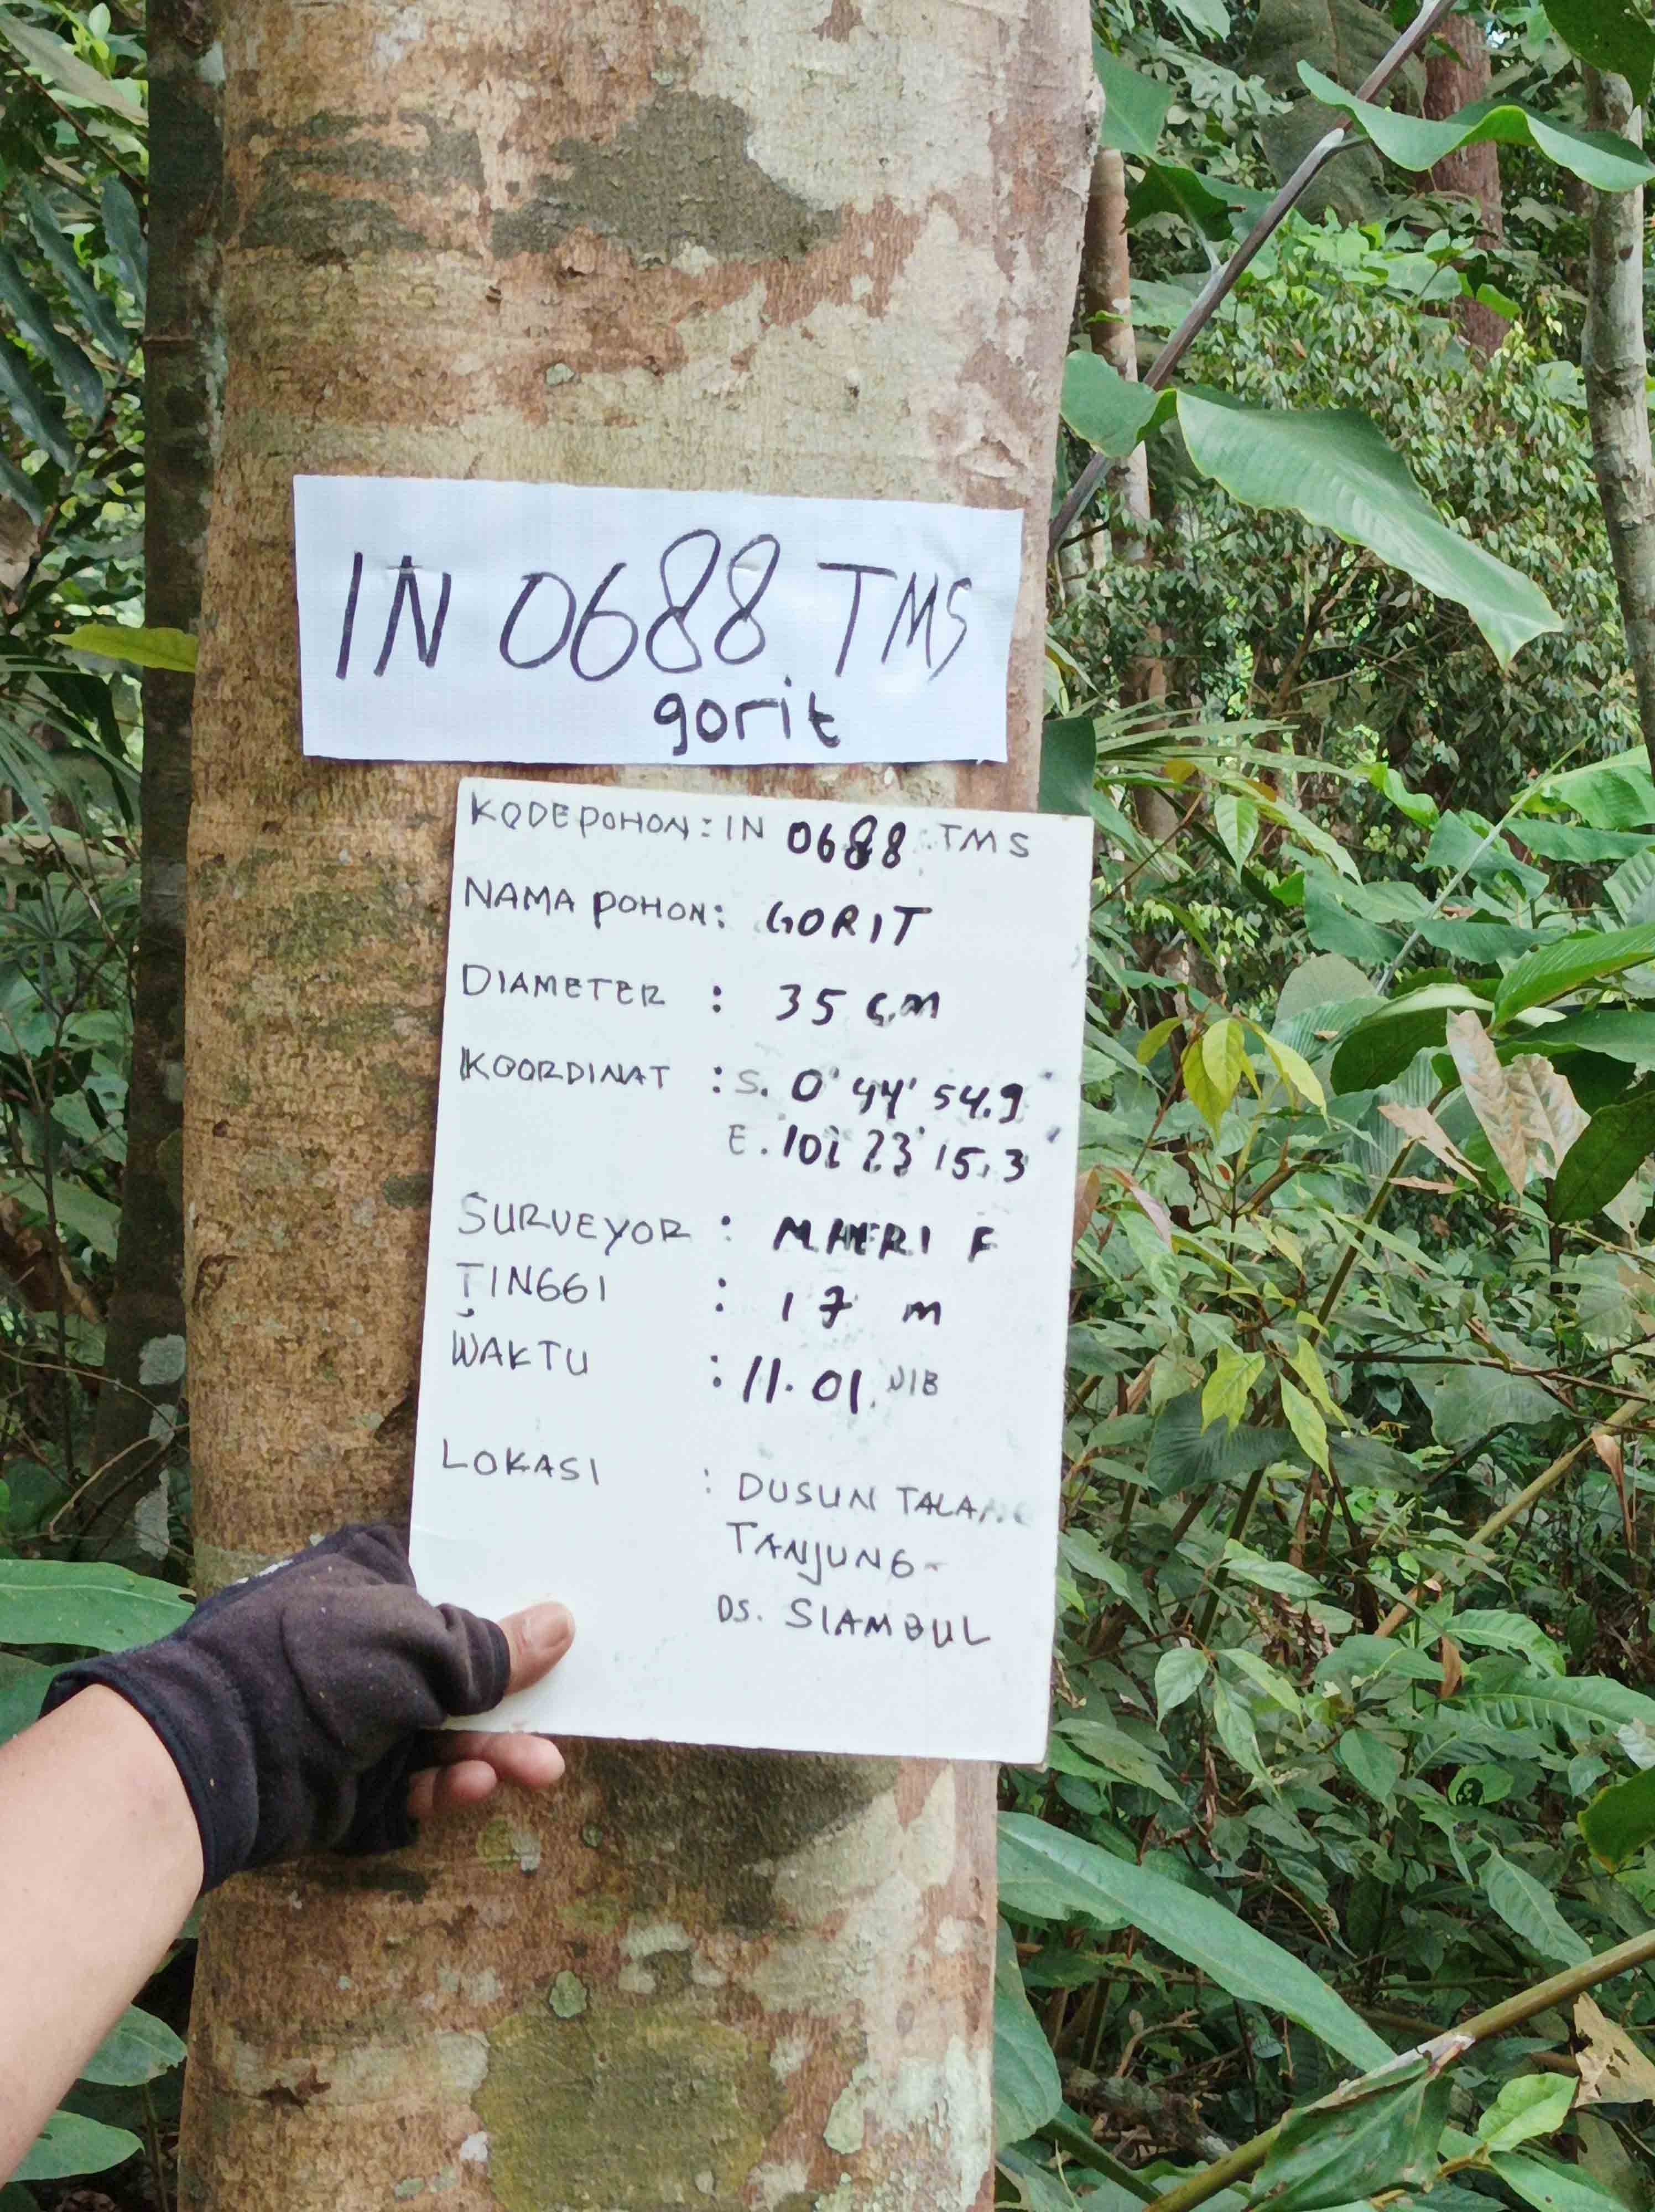 IN 0688 TMS
gorit
KODEPOHON: IN 0688 TMS
NAMA POHON: GORIT
DIAMETER : 35 cm
KOORDINAT : S. 0° 44' 54.9"
E. 101 23' 15.3"
SURVEYOR : M HERI F
TINGGI : 17 m
WAKTU : 11.01 WIB
LOKASI : DUSUN TALANG
TANJUNG-
DS. SIAMBUL